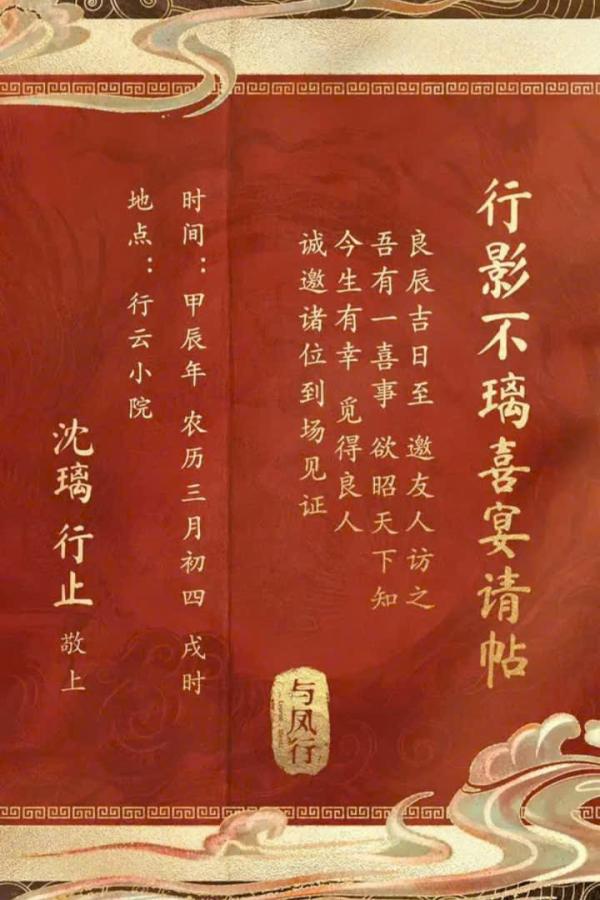 行影不璃喜宴请帖
良辰吉日至 邀友人访之
吾有一喜事 欲昭天下知
今生有幸 觅得良人
诚邀诸位到场见证
与凤行
时间：甲辰年 农历三月初四 戌时
地点：行云小院
沈璃 行止 敬上